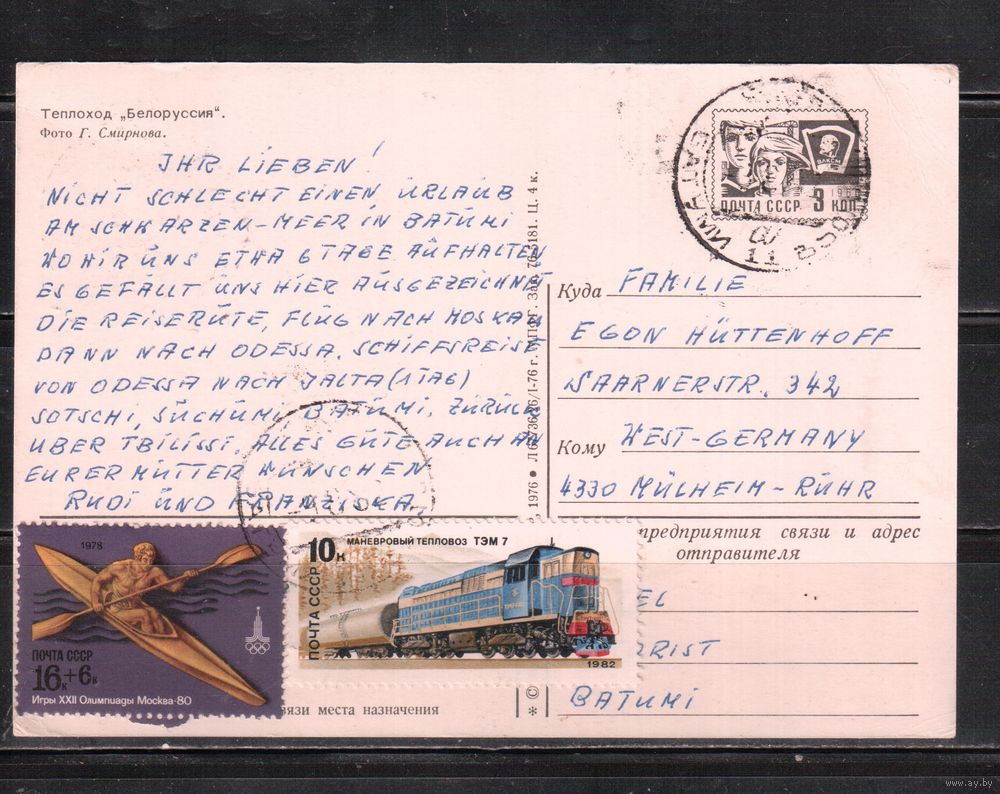 Теплоход „Белоруссия".
Фото Г. Смирнова.
IHR LIEBEN!
NICHT SCHLECHT EINEN URLAUB
AM SCHWARZEN-MEER IN BATUMI
WO WIR UNS ETWA 6 TAGE AUFHALTEN
ES GEFÄLLT UNS HIER AUSGEZEICHNET
DIE REISERUTE, FLUG NACH MOSKAU
DANN NACH ODESSA. SCHIFFSREISE
VON ODESSA NACH JALTA (1 TAG)
SOTSCHI, SUCHUMI BATUMI. ZURÜCK
UBER TBILISSI. ALLES GUTE AUCH AN
EURER MUTTER WÜNSCHEN
RUDI UND
1976
Ц. 4 к.
ПОЧТА СССР 3 КОП
ВЛКСМ
Куда FAMILIE
EGON HÜTTENHOFF
SAARNERSTR. 342
Кому WEST-GERMANY
4330 MÜLHEIM-RUHR
предприятия связи и адрес
отправителя
EL
RIST
BATUMI
1978
ПОЧТА СССР
16к+6к
Игры XXII Олимпиады Москва-80
10к
МАНЕВРОВЫЙ ТЕПЛОВОЗ ТЭМ 7
ПОЧТА СССР
1982
связи места назначения
* ©
www.ay.by